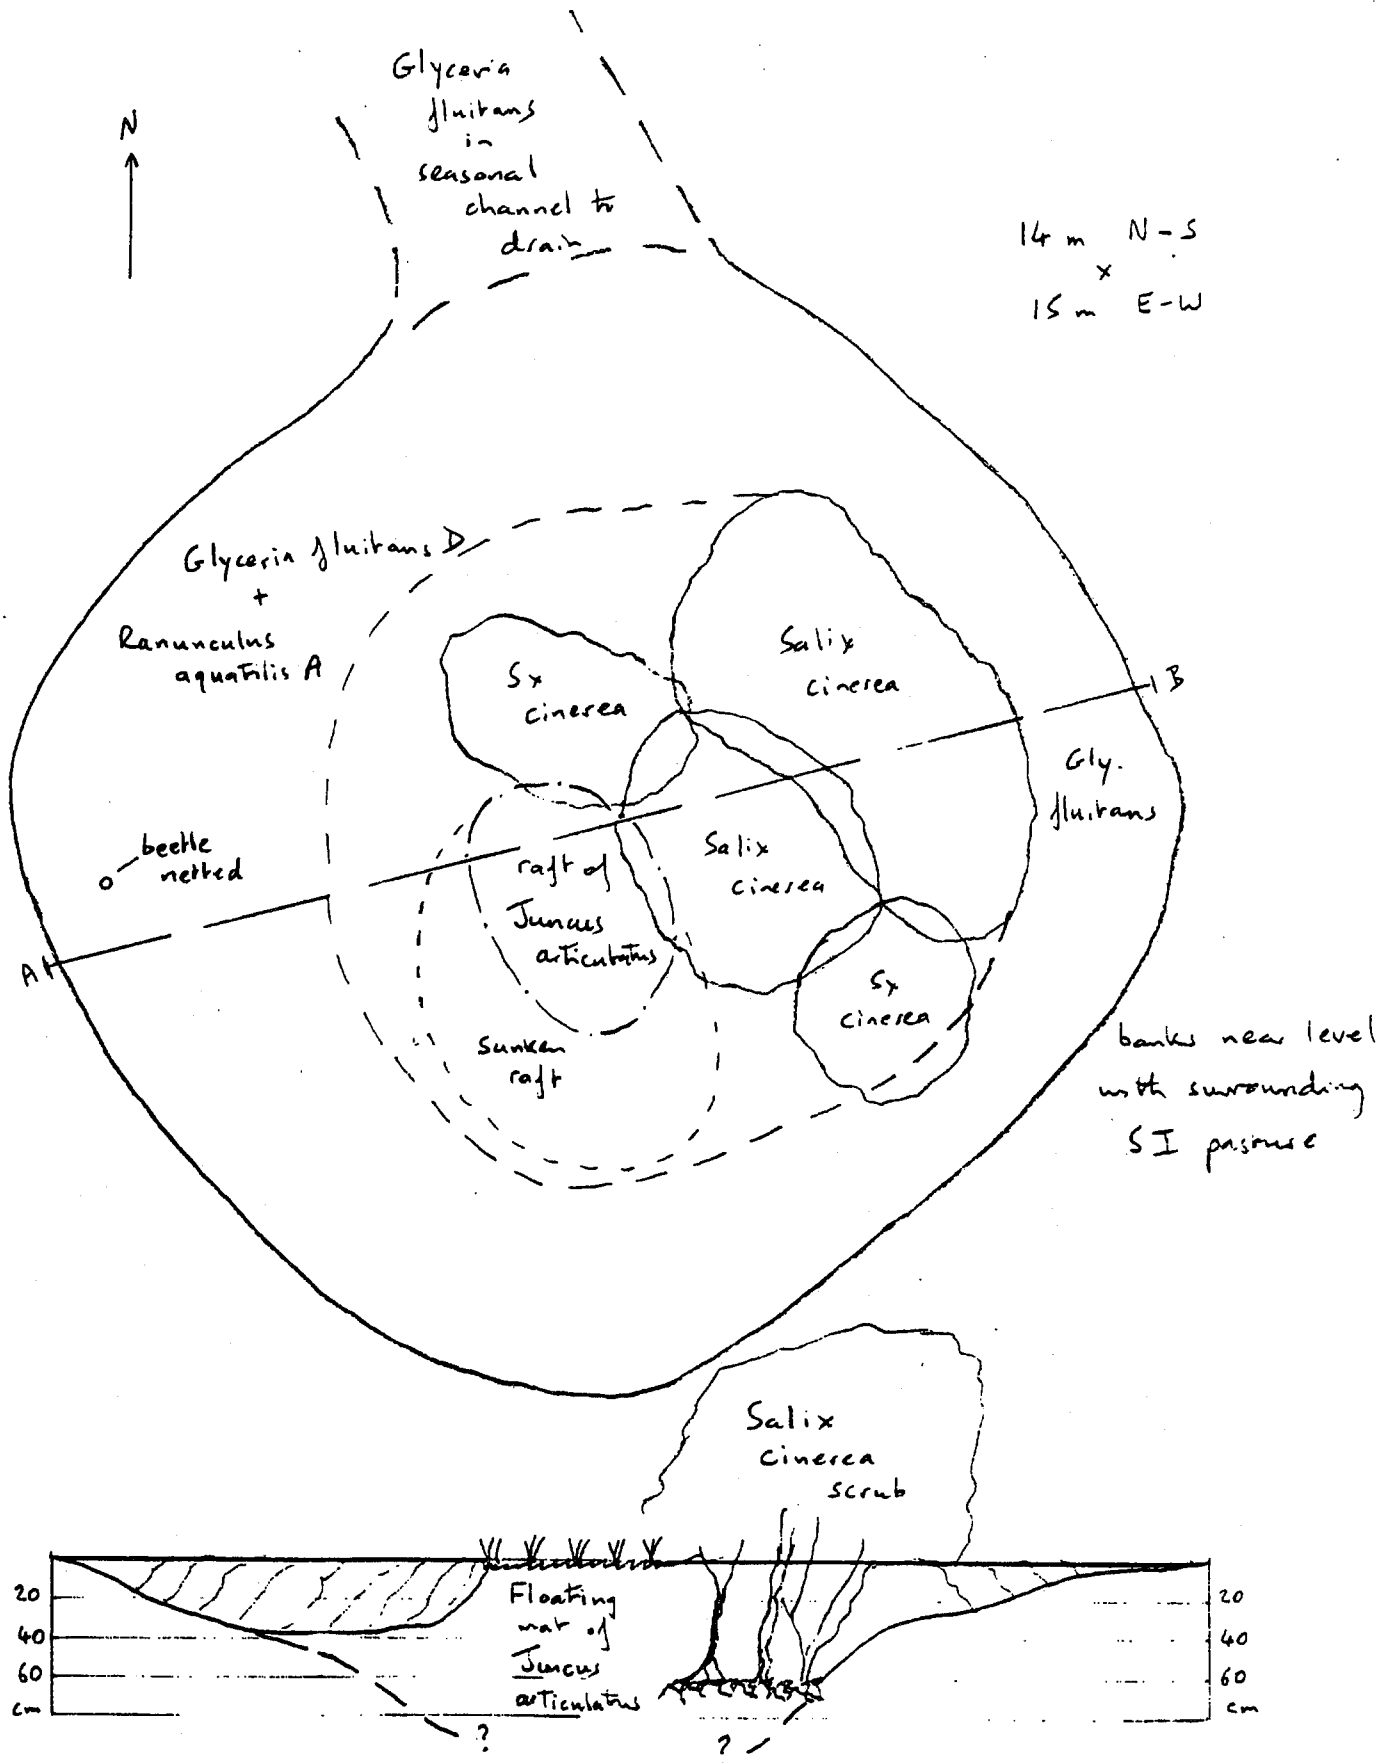 Glyceria
fluitans
in
seasonal
channel to
drain
N
14 m N-S
x
15 m E-W
Glyceria fluitans D
+
Ranunculus
aquatilis A
Sx
cinerea
Salix
cinerea
B
Gly.
fluitans
beetle
netted
raft of
Juncus
articulatus
Salix
cinerea
A
Sx
cinerea
sunken
raft
banks near level
with surrounding
SI pasture
Salix
cinerea
scrub
20
40
60
cm
Floating
mat of
Juncus
articulatus
20
40
60
cm
?
?